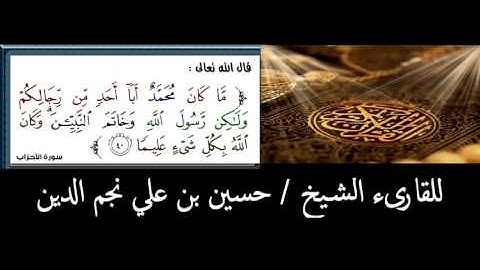 قال الله تعالى :
﴿ مَّا كَانَ مُحَمَّدٌ أَبَآ أَحَدٍ مِّن رِّجَالِكُمْ
وَلَٰكِن رَّسُولَ اللَّهِ وَخَاتَمَ النَّبِيِّـۧنَ ۗ وَكَانَ
اللَّهُ بِكُلِّ شَىْءٍ عَلِيمًا ٤٠ ﴾
سورة الأحزاب
للقارىء الشيخ / حسين بن علي نجم الدين